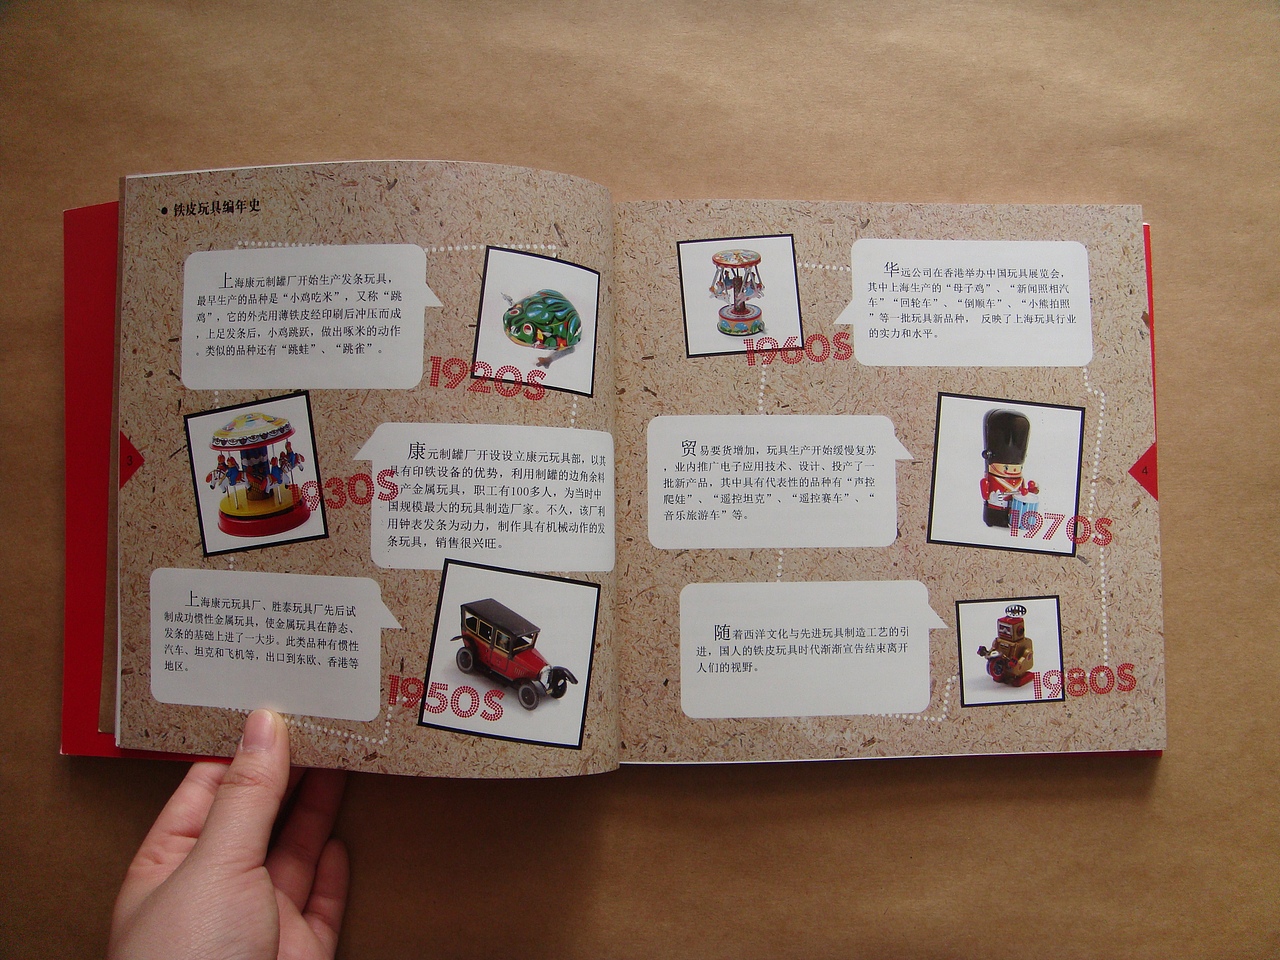 铁皮玩具编年史
上海康元制罐厂开始生产发条玩具，
最早生产的品种是“小鸡吃米”，又称“跳
鸡”，它的外壳用薄铁皮经印刷后冲压而成
，上足发条后，小鸡跳跃，做出啄米的动作
。类似的品种还有“跳蛙”、“跳雀”。
1920S
康元制罐厂开设设立康元玩具部，以其
具有印铁设备的优势，利用制罐的边角余料
产金属玩具，职工有100多人，为当时中
国规模最大的玩具制造厂家。不久，该厂利
用钟表发条为动力，制作具有机械动作的发
条玩具，销售很兴旺。
1930S
上海康元玩具厂、胜泰玩具厂先后试
制成功惯性金属玩具，使金属玩具在静态、
发条的基础上进了一大步。此类品种有惯性
汽车、坦克和飞机等，出口到东欧、香港等
地区。
1950S
3
华远公司在香港举办中国玩具展览会，
其中上海生产的“母子鸡”、“新闻照相汽
车”“回轮车”、“倒顺车”、“小熊拍照
”等一批玩具新品种， 反映了上海玩具行业
的实力和水平。
1960S
贸易要货增加，玩具生产开始缓慢复苏
，业内推广电子应用技术、设计、投产了一
批新产品，其中具有代表性的品种有“声控
爬娃”、“遥控坦克”、“遥控赛车”、“
音乐旅游车”等。
1970S
随着西洋文化与先进玩具制造工艺的引
进，国人的铁皮玩具时代渐渐宣告结束离开
人们的视野。
1980S
4